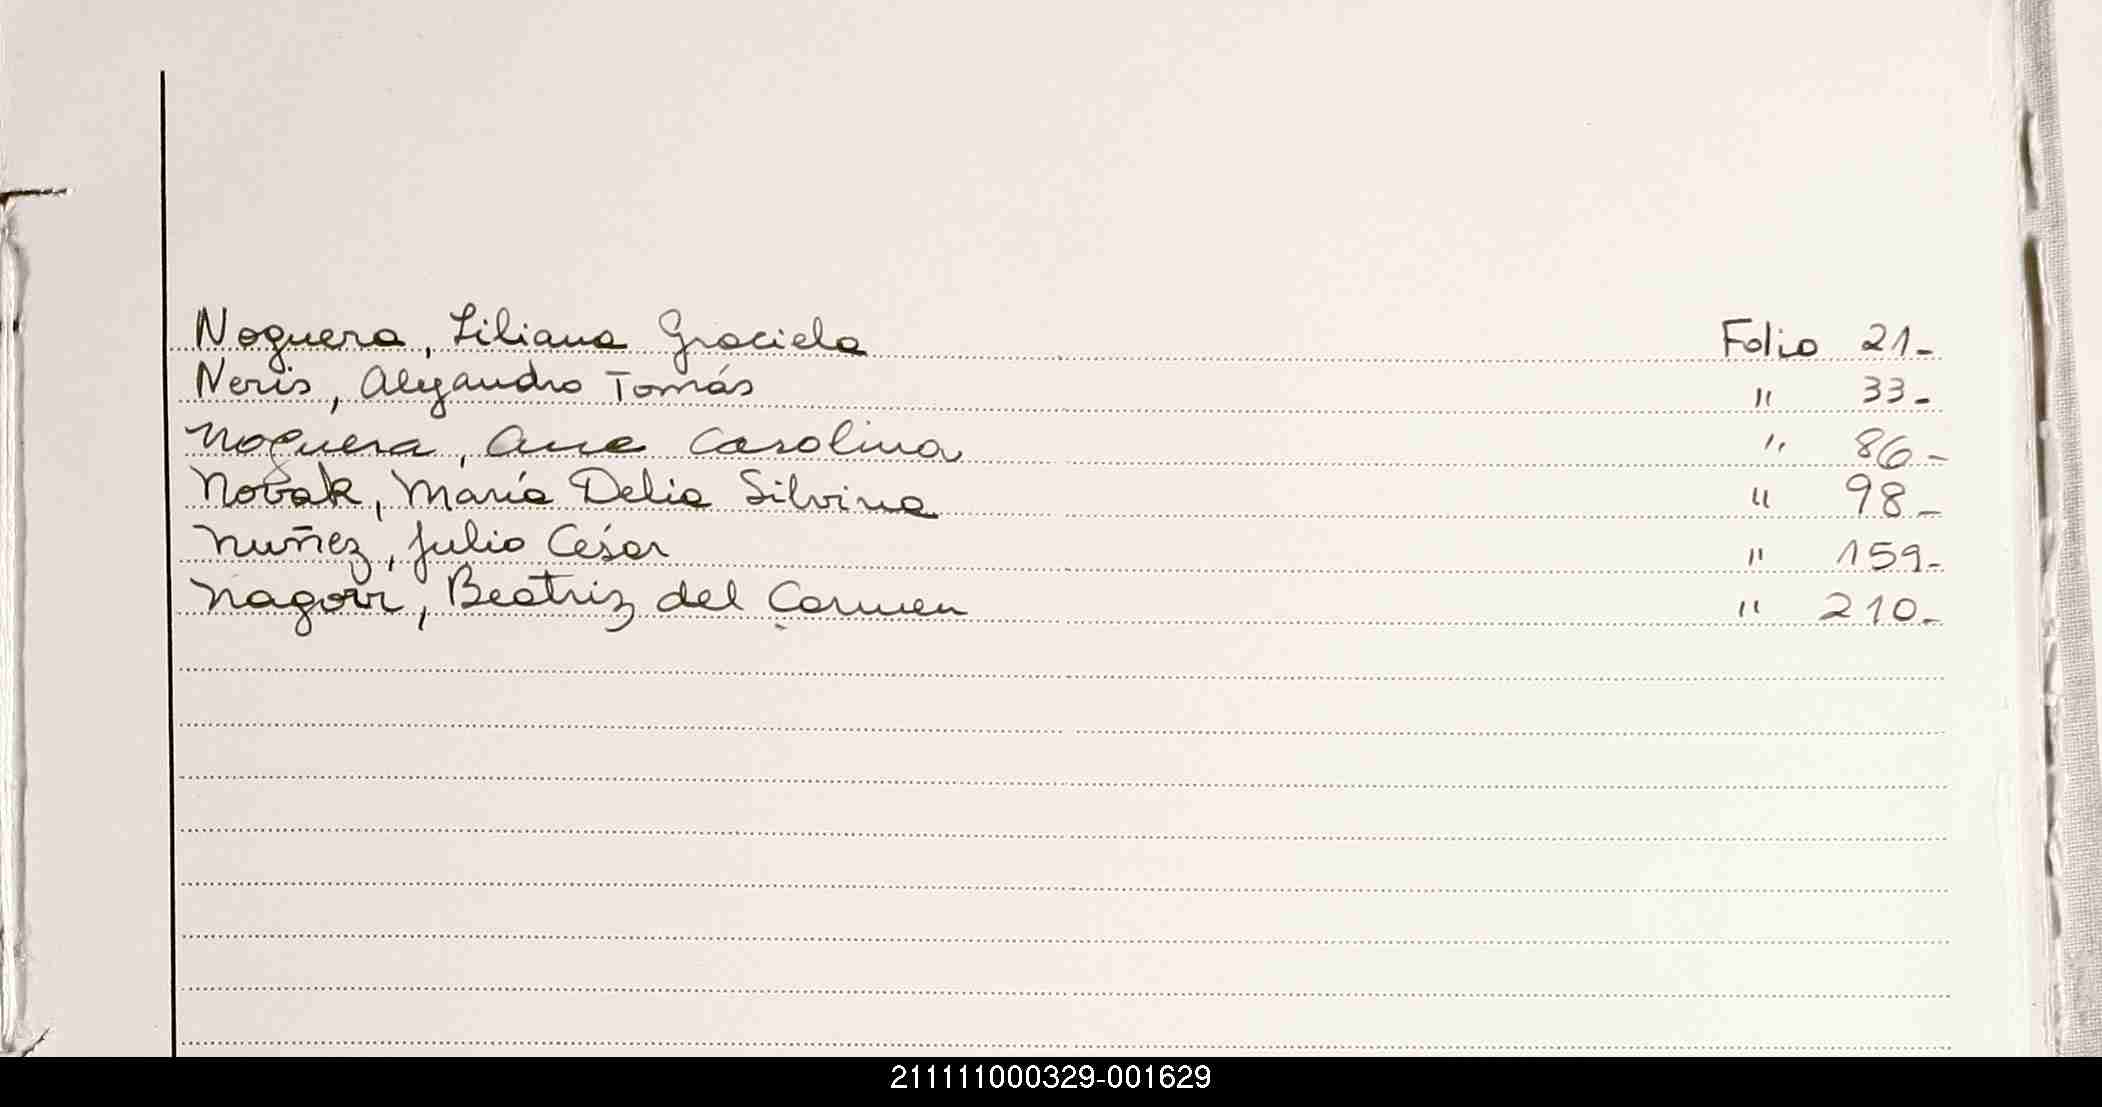 Noguera, Liliana Graciela Folio 21-
Neris, Alejandro Tomás " 33-
Noguera, Ana Carolina " 86-
Novak, María Delia Silvina " 98-
Nuñez, Julio César " 159-
Beatriz del Carmen " 210-
211111000329-001629